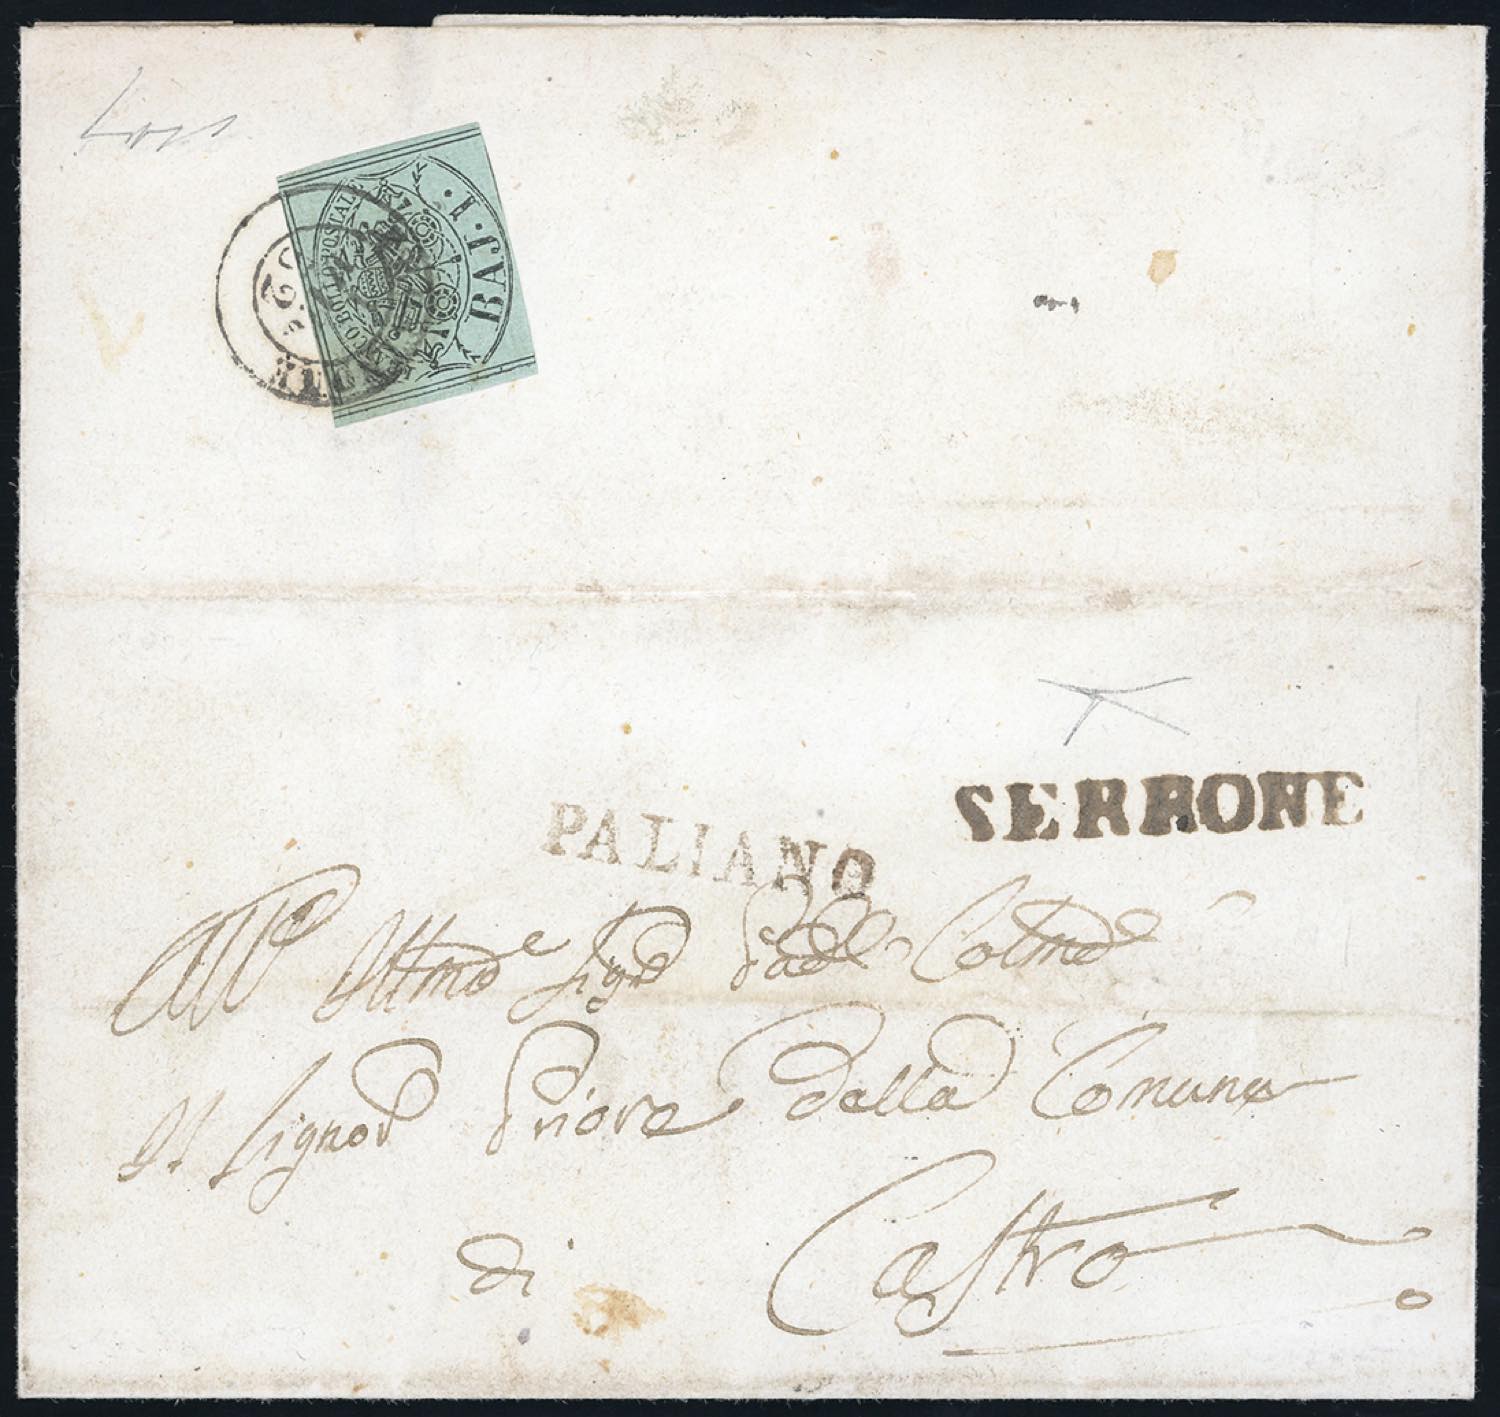 BAJ. 1.
FRANCO BOLLO POSTALE
PALIANO
SERRONE
All' Illmo Sigre Pade Colmo
Il Signor Priore della Comune
di Castro